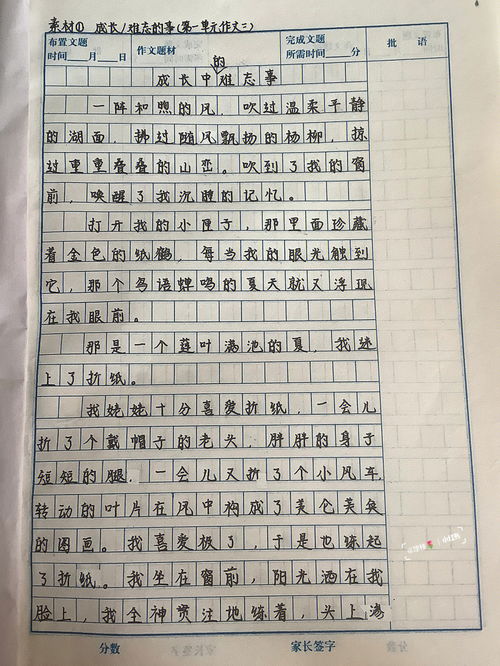 素材① 成长/难志的事(第一单元作文二)
布置文题
时间 月 日
作文题材
完成文题
所需时间 分
批 语
的
成长中难志事
一阵和煦的风,吹过温柔平静
的湖面,拂过随风飘扬的杨柳,掠
过重重叠叠的山峦。吹到了我的窗
前,唤醒了我沉睡的记忆。
打开我的小匣子,那里面珍藏
着金色的纸鹤,每当我的眼光触到
它,那个鸟语蝉鸣的夏天就又浮现
在我眼前。
那是一个莲叶满池的夏,我迷
上了折纸。
我姥姥十分喜爱折纸,一会儿
折了个戴帽子的老头,胖胖的身子
短短的腿,一会儿又折了个小风车,
转动的叶片在风中构成了美仑美奂
的图画。我喜爱极了,于是也练起
了折纸。我坐在窗前,阳光洒在我
脸上,我全神贯注地练着,头上
分数
家长签字